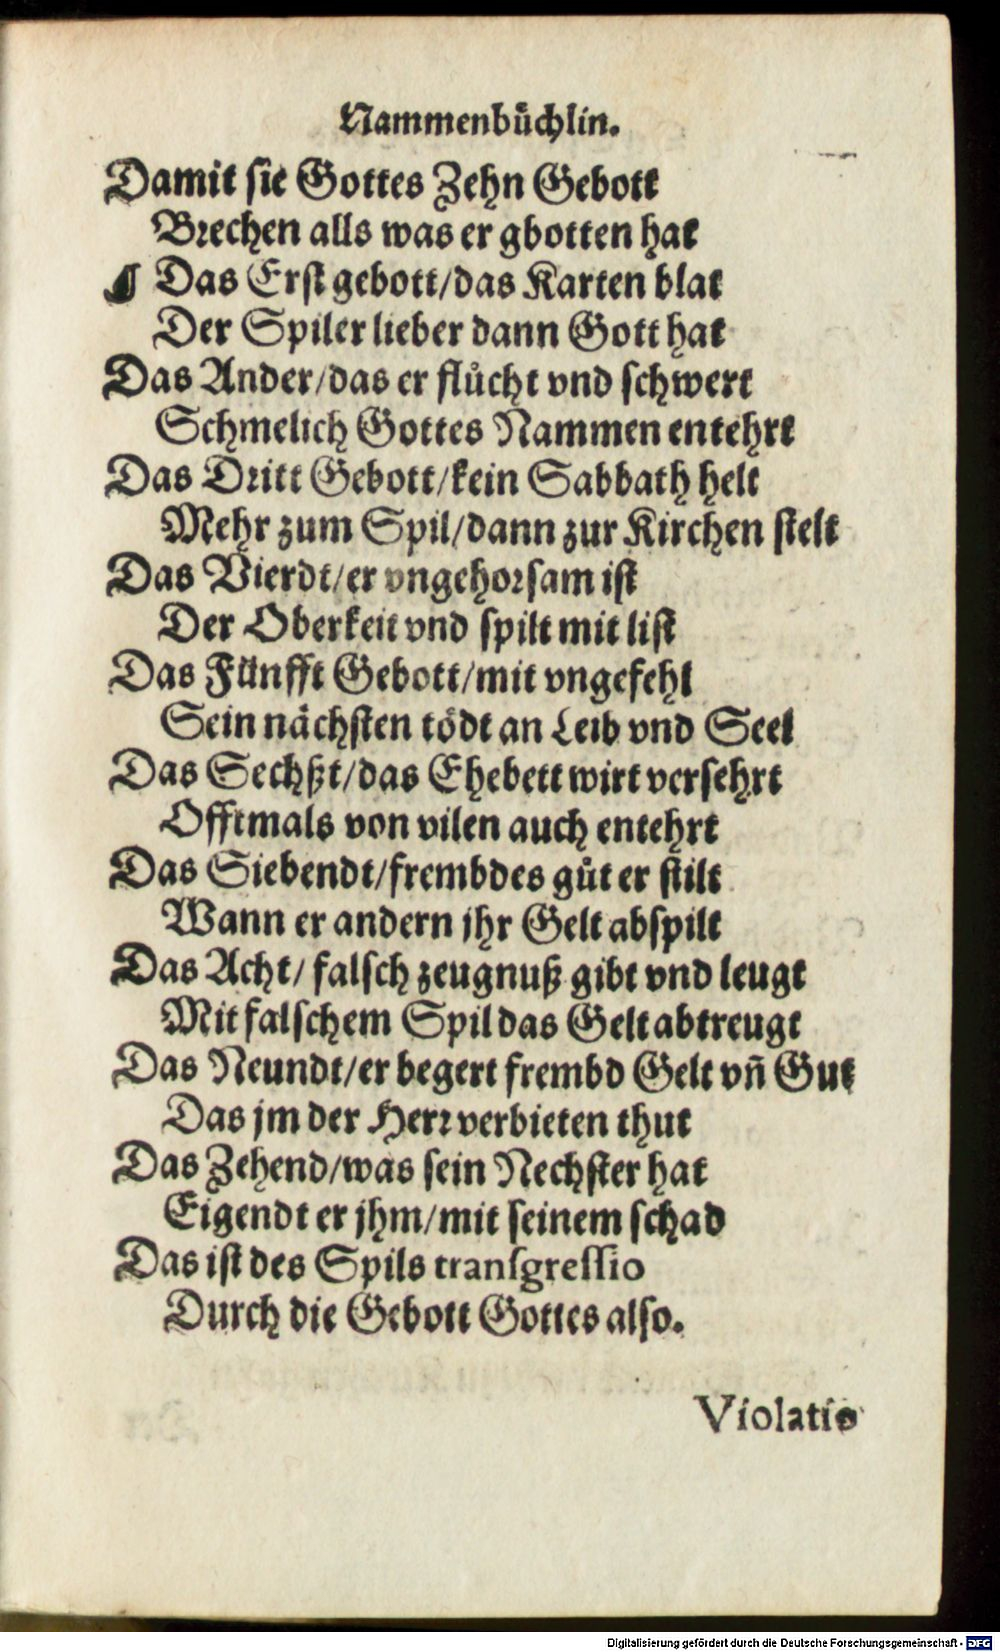 Nammenbuͤchlin.
Damit sie Gottes Zehn Gebott
Brechen alls was er gbotten hat
¶ Das Erst gebott/das Karten blat
Der Spiler lieber dann Gott hat
Das Ander/das er fluͤcht vnd schwert
Schmelich Gottes Nammen entehrt
Das Dritt Gebott/kein Sabbath helt
Mehr zum Spil/dann zur Kirchen stelt
Das Vierdt/er vngehorsam ist
Der Oberkeit vnd spilt mit list
Das Fünfft Gebott/mit vngefehl
Sein nächsten tödt an Leib vnd Seel
Das Sechßt/das Ehebett wirt versehrt
Offtmals von vilen auch entehrt
Das Siebendt/frembdes guͤt er stilt
Wann er andern jhr Gelt abspilt
Das Acht/ falsch zeugnuß gibt vnd leugt
Mit falschem Spil das Gelt abtreugt
Das Neundt/er begert frembd Gelt vn̄ Gut
Das jm der Herr verbieten thut
Das Zehend/was sein Nechster hat
Eigendt er jhm/mit seinem schad
Das ist des Spils transgressio
Durch die Gebott Gottes also.
Violatio
Digitalisierung gefördert durch die Deutsche Forschungsgemeinschaft - DFG